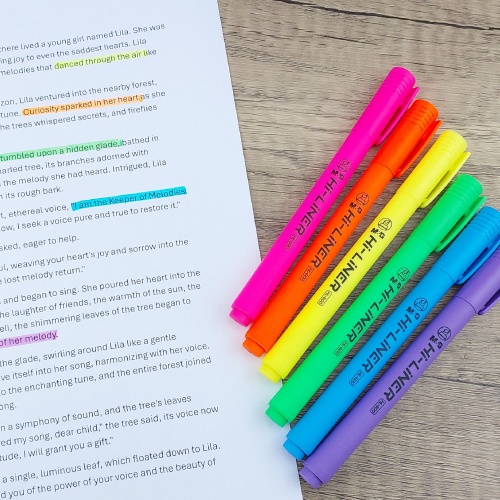 there lived a young girl named Lila. She was
ing joy to even the saddest hearts. Lila
melodies that danced through the air like
zon, Lila ventured into the nearby forest,
tune. Curiosity sparked in her heart as she
the trees whispered secrets, and fireflies
tumbled upon a hidden glade, bathed in
narled tree, its branches adorned with
the melody she had heard. Intrigued, Lila
n its rough bark.
t, ethereal voice, "I am the Keeper of Melodies,
ow, I seek a voice pure and true to restore it."
asked, eager to help.
ul, weaving your heart's joy and sorrow into the
e lost melody return."
and began to sing. She poured her heart into the
he laughter of friends, the warmth of the sun, the
ell, the shimmering leaves of the tree began to
of her melody.
the glade, swirling around Lila like a gentle
ve itself into her song, harmonizing with her voice.
to the enchanting tune, and the entire forest joined
ong.
n a symphony of sound, and the tree's leaves
red my song, dear child," the tree said, its voice now
itude, I will grant you a gift."
a single, luminous leaf, which floated down to Lila.
d you of the power of your voice and the beauty of
Hi-LINER
Hi-LINER
Hi-LINER
Hi-LINER
Hi-LINER
Hi-LINER